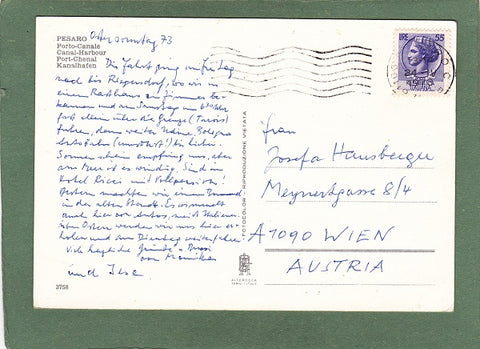 PESARO
Porto-Canale
Canal-Harbour
Port-Chenal
Kanalhafen
Ostersonntag 73
Die Fahrt ging am Freitag
nach bis Riegersdorf, wo wir in
einem Rasthaus ein Zimmer be-
kamen und am Samstag um
fort dann über die Grenze (Tarvis)
fuhren, dann weiter Udine, Bologna
Autobahn bis hierher.
Sonnenschein empfing uns, aber
am Meer ist es windig. Sind im
Hotel Ricci mit Vollpension!
Gestern machten wir einen
in der alten Stadt. Es
auch hier von Autos, meist Italiener.
Ostern werden wir uns hier er-
holen und am Dienstag weiterfahren.
Viele herzliche Grüße
von
und
3758
FOTOCOLOR - RIPRODUZIONE VIETATA
ALTEROCCA
TERNI - ITALY
LIRE 55
ITALIANE
24-4
1973
Frau
Josefa Hausberger
Meynertgasse 8/4
A1090 WIEN
AUSTRIA